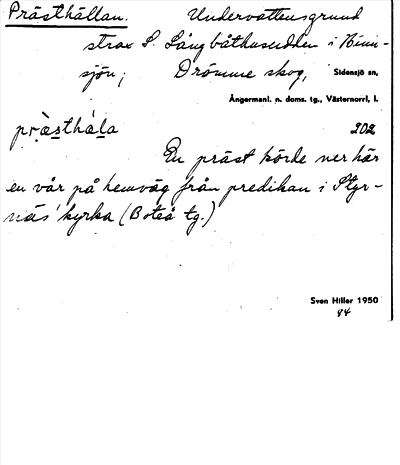 Prästhällan. Undervattensgrund
strax S. Långbåthusudden i Binn-
sjön; Drömme skog, Sidensjö sn,
Ångermanl. n. doms. tg., Västernorrl, l.
prä̀sthála 202
En präst körde ner här
en vår på hemväg från predikan i Styr-
näs kyrka (Boteå tg.)
Sven Hiller 1950
84